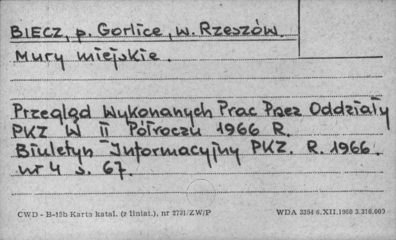 BIECZ, p. Gorlice, w. Rzeszów.
Mury miejskie.
Przegląd Wykonanych Prac Przez Oddziały
PKZ W II Półroczu 1966 R.
Biuletyn Informacyjny PKZ. R. 1966.
nr 4 s. 67.
CWD - B-15b Karta katal. (z liniat.), nr 2731/ZW/P
WDA 3354 6.XII.1960 3.210.000